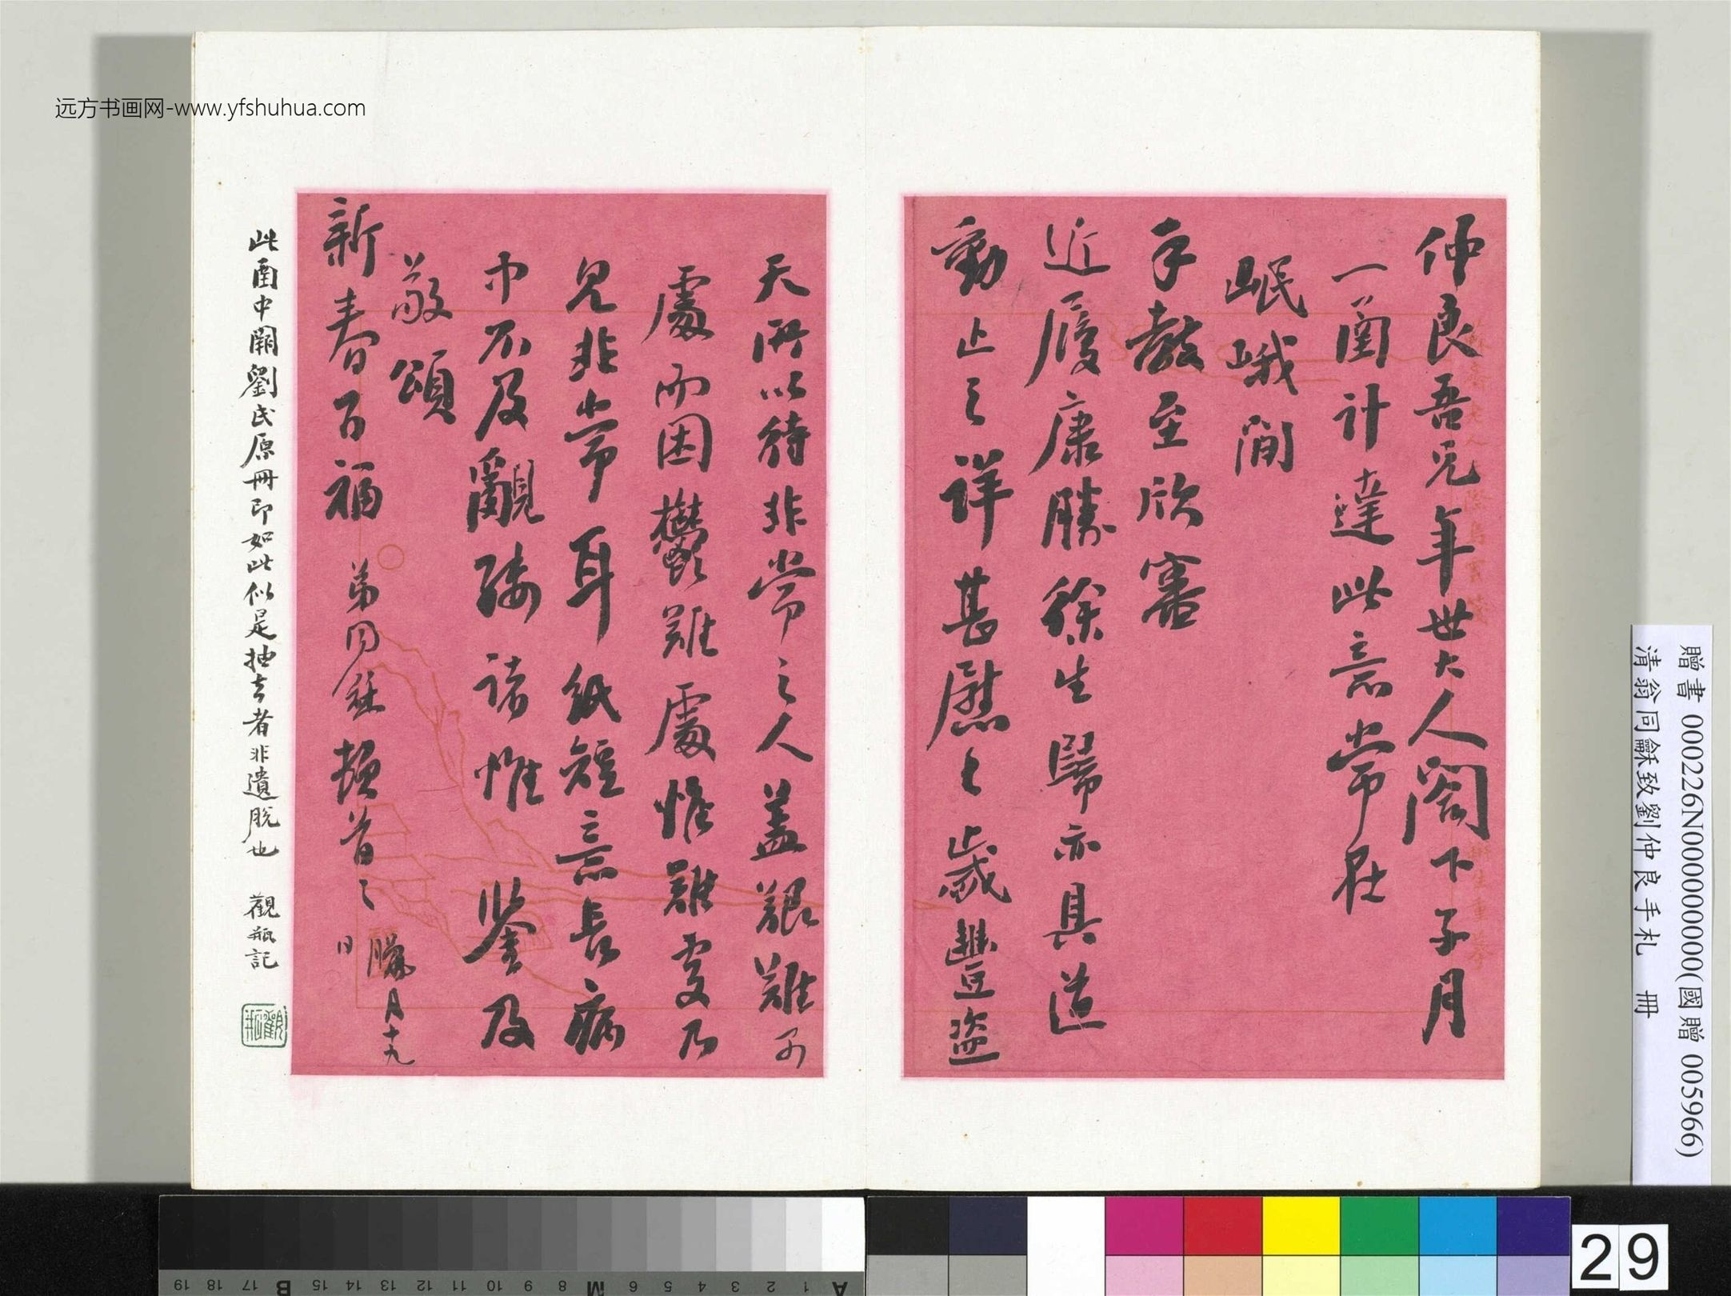 仲良吾兄年世大人閣下子月
一圅計達此意常在
岷峨間
手教至欣審
近履康勝徐生歸亦具道
動止之詳甚慰之歲豐盜
天所以待非常之人蓋艱難
處而困鬱難處惟難處乃
見非常耳紙短意長病
中不及覼縷諸惟鑒及
敬頌
新春百福
弟同龢頓首
臘月十九日
此圅中闕劉氏原冊即如此似是抽去者非遺脫也 觀瓶記
觀瓶
贈書 000226N000000000(國贈 005966)
清翁同龢致劉仲良手札 冊
远方书画网-www.yfshuhua.com
29
19 18 17 B 15 14 13 12 11 10 9 8 M 6 5 4 3 2 1 A